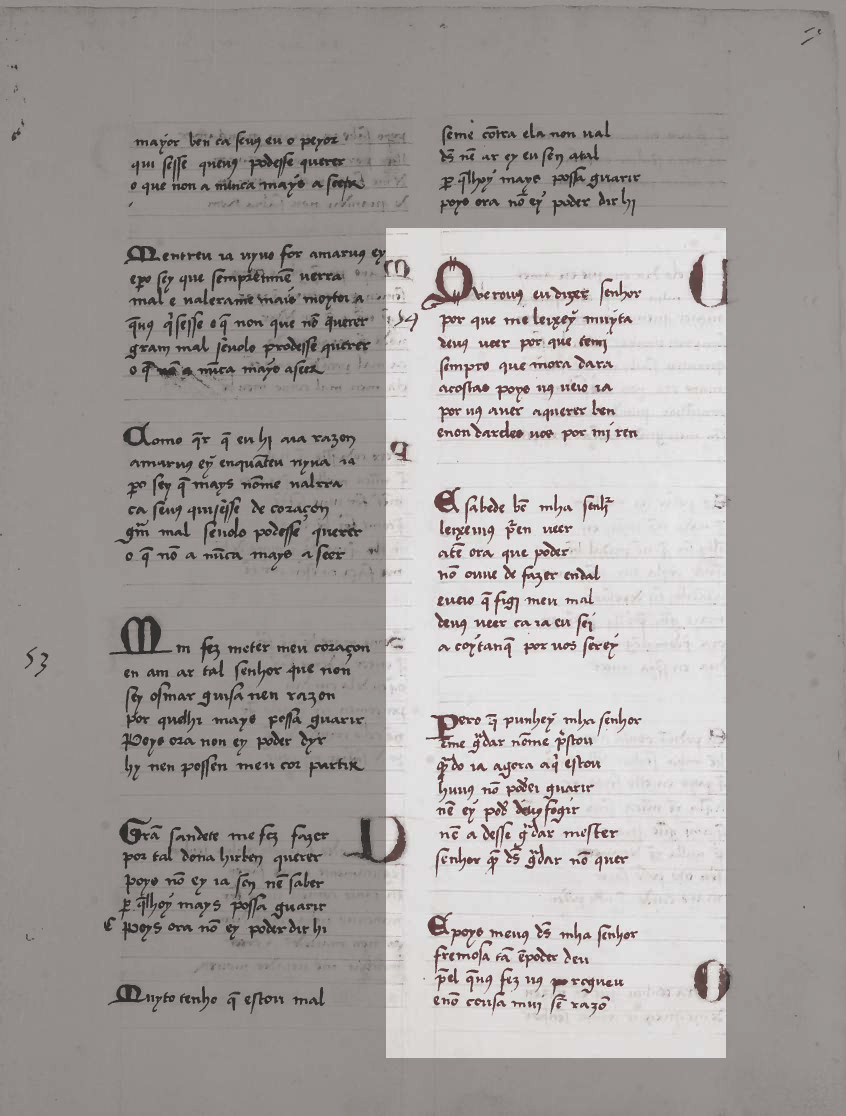 mayor ben ca seuꝯ eu o peyor
qui sesse queuꝯ podesse querer
o que non a nũca mays a seer
Mentreu ia uyuo for amaruꝯ ey
epo sey que uerra
mal e ualerame mais
q̃uꝯ q̃sesse o q̃ non que nõ querer
gram mal seuolo podesse querer
o q̃ a nũca mays a seer
Como q̃r q̃ eu hi aia razon
amaruꝯ ey enquãteu uyua ia
po sey q̃ mays nõme ualrra
ca seuꝯ quisesse de coraçon
grã mal seuolo podesse querer
o q̃ nõ a nũca mays a seer
53
Mim fez meter meu coraçon
en am ar tal senhor que non
sey osmar guisa nen razon
por quelhi mays possa guarir
Poys ora non ey poder dyr
hy nen possen meu cor partir
Grã sandeçe me fez fazer
por tal dona hirben querer
poys nõ ey ia sen nẽ saber
per q̃lhoy mays possa guarir
E Poys ora nõ ey poder dir hi
Muyto tenho q̃ estou mal
seme cõtra ela non ual
dꝭ nẽ ar ey eu sen atal
per q̃lhoy mays possa guarir
poys ora nõ ey poder dir hi
54
Querouꝯ eu dizer senhor
por que me leixey muyta
deuꝯ ueer por que temi
sempre que mora dara
acostas poys uꝯ ueio ia
por uꝯ auer aquerer ben
enon dardes uos por mi ren
E sabede bẽ mha senhr̃
leixeiuꝯ p̃en ueer
atẽ ora que poder
nõ ouue de fazer endal
eueio q̃ figi meu mal
deuꝯ ueer ca ia eu sei
a coytanq̃ por uos serey
Pero xi punhey mha senhor
eme g̃dar nõme p̃stou
q̃do ia agora aq̃ estou
huuꝯ nõ podei guarir
nẽ ey pod̃ deuꝯ fogir
nẽ a desse g̃dar mester
senhor q̃ dꝭ g̃dar nõ quer
E poys meuꝯ dꝭ mha senhor
fremosa tã ẽpoder deu
p̃el q̃uꝯ fez uꝯ
enõ mui sẽ razõ